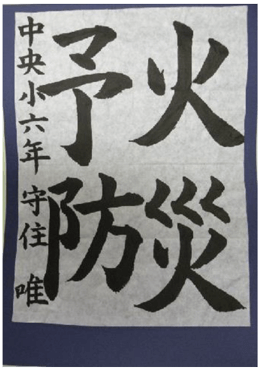 火災
予防
中央小六年 守住 唯